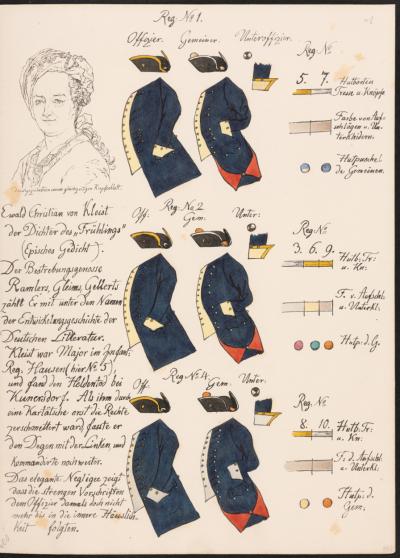 Reg: No 1.
Offizier. Gemeiner. Unteroffizier.
Reg: No
5. 7. Hutborten
Tresse u. Knöpfe
Farbe von Auf-
schlägen u. Un-
terkleidern.
Hutpuschel
de Gemeinen.
Ewald Christian von Kleist
der Dichter des „Frühlings"
(Episches Gedicht).
Der Bestrebungsgenosse
Ramlers, Gleims, Gellerts
zählt Er mit unter den Namen
der Entwickelungsgeschichte der
Deutschen Litteratur.
Kleist war Major im Infant:
Reg. Hausen (hier No 5)
und fand den Heldentod bei
Kunersdorf. Als ihm durch
eine Kartätsche erst die Rechte
zerschmettert ward, faste er
den Degen mit der Linken, und
kommandirte noch weiter.
Das elegante Negligee zeigt
dass die strengen Vorschriften
dem Offizier damals doch nicht
mehr bis in die innere Häuslich-
keit folgten.
Off: Reg: No 2 Gem: Unter:
Reg: No
3. 6. 9. Hutb: Tr:
u. Kn:
F. v. Aufschl:
u. Unterkl:
Hutp: d. G.
Off: Reg: No 4. Gem: Unter:
Reg. No
8. 10. Hutb: Tr:
u. Kn:
F. d. Aufschl
u. Unterkl:
Hutp: d.
Gem: